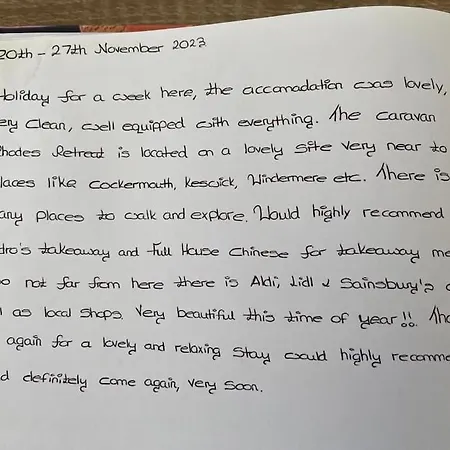 20th - 27th November 2023
Holiday for a week here, the accomadation was lovely,
ery clean, well equipped with everything. The caravan
hodes Retreat is located on a lovely site very near to
laces like Cockermouth, Keswick, Windermere etc. There is
any places to walk and explore. Would highly recommend
dro's takeaway and Full House Chinese for takeaway me
o not far from here there is Aldi, Lidl & Sainsbury's
as local shops. Very beautiful this time of year!! Tha
again for a lovely and relaxing stay would highly recomme
d definitely come again, very soon.